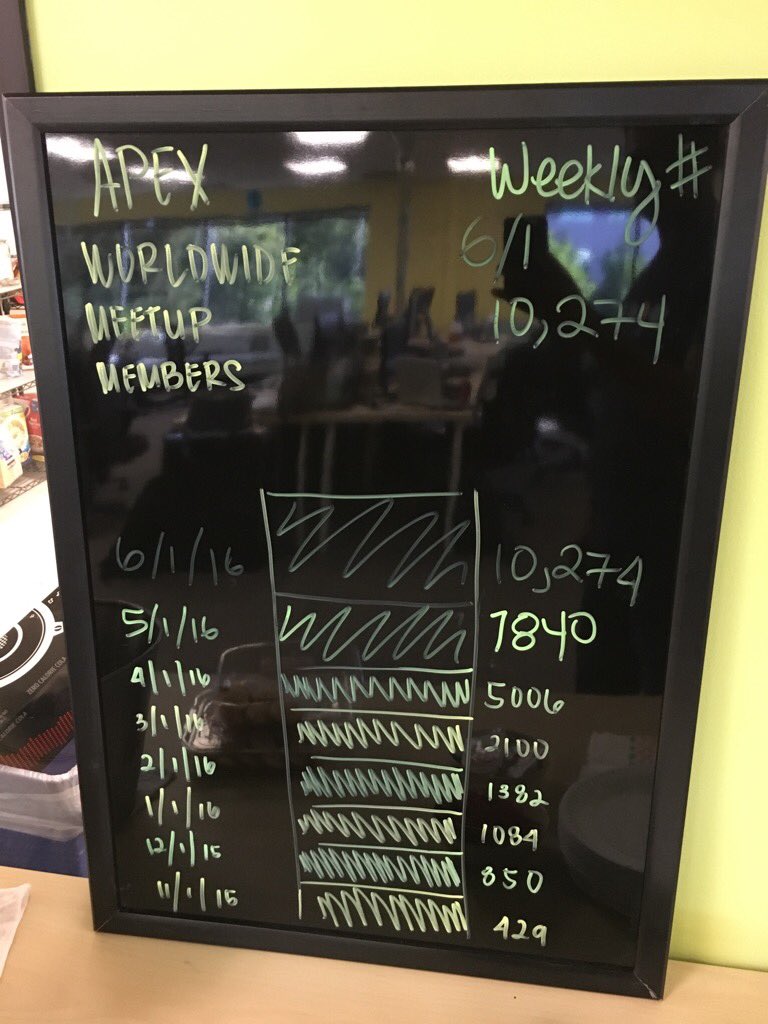 APEX
WORLDWIDE
MEETUP
MEMBERS
Weekly #
6/1
10,274
6/1/16 10,274
5/1/16 7840
4/1/16 5006
3/1/16 2100
2/1/16 1382
1/1/16 1084
12/1/15 850
11/1/15 429
ZERO CALORIE COLA